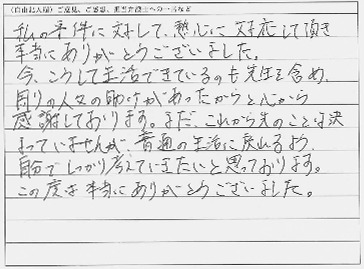 (自由記入欄) ご意見、ご感想、担当弁護士への一言など
私の事件に対して、熱心に対応して頂き
本当にありがとうございました。
今、こうして生活できているのも先生を含め、
周りの人々の助けがあったからと心から
感謝しております。まだ、これから先のことは決
まっていませんが、普通の生活に戻れるよう、
自分でしっかり考えていきたいと思っております。
この度は本当にありがとうございました。